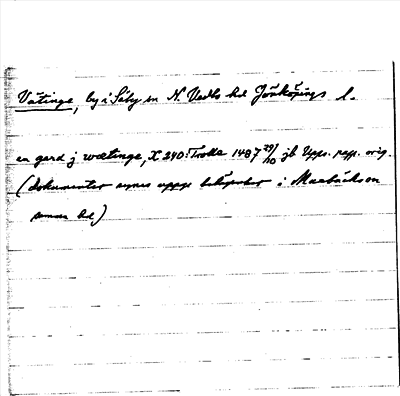 Vätinge, by i Säby sn N. Vedbo hd Jönköpings l.
en gard j wætinge, X 240: Trolle 1487 29/10 jb Upps. papp. orig.
(dokumentet synes uppge belägenhet i Marbäck sn
samma hd)